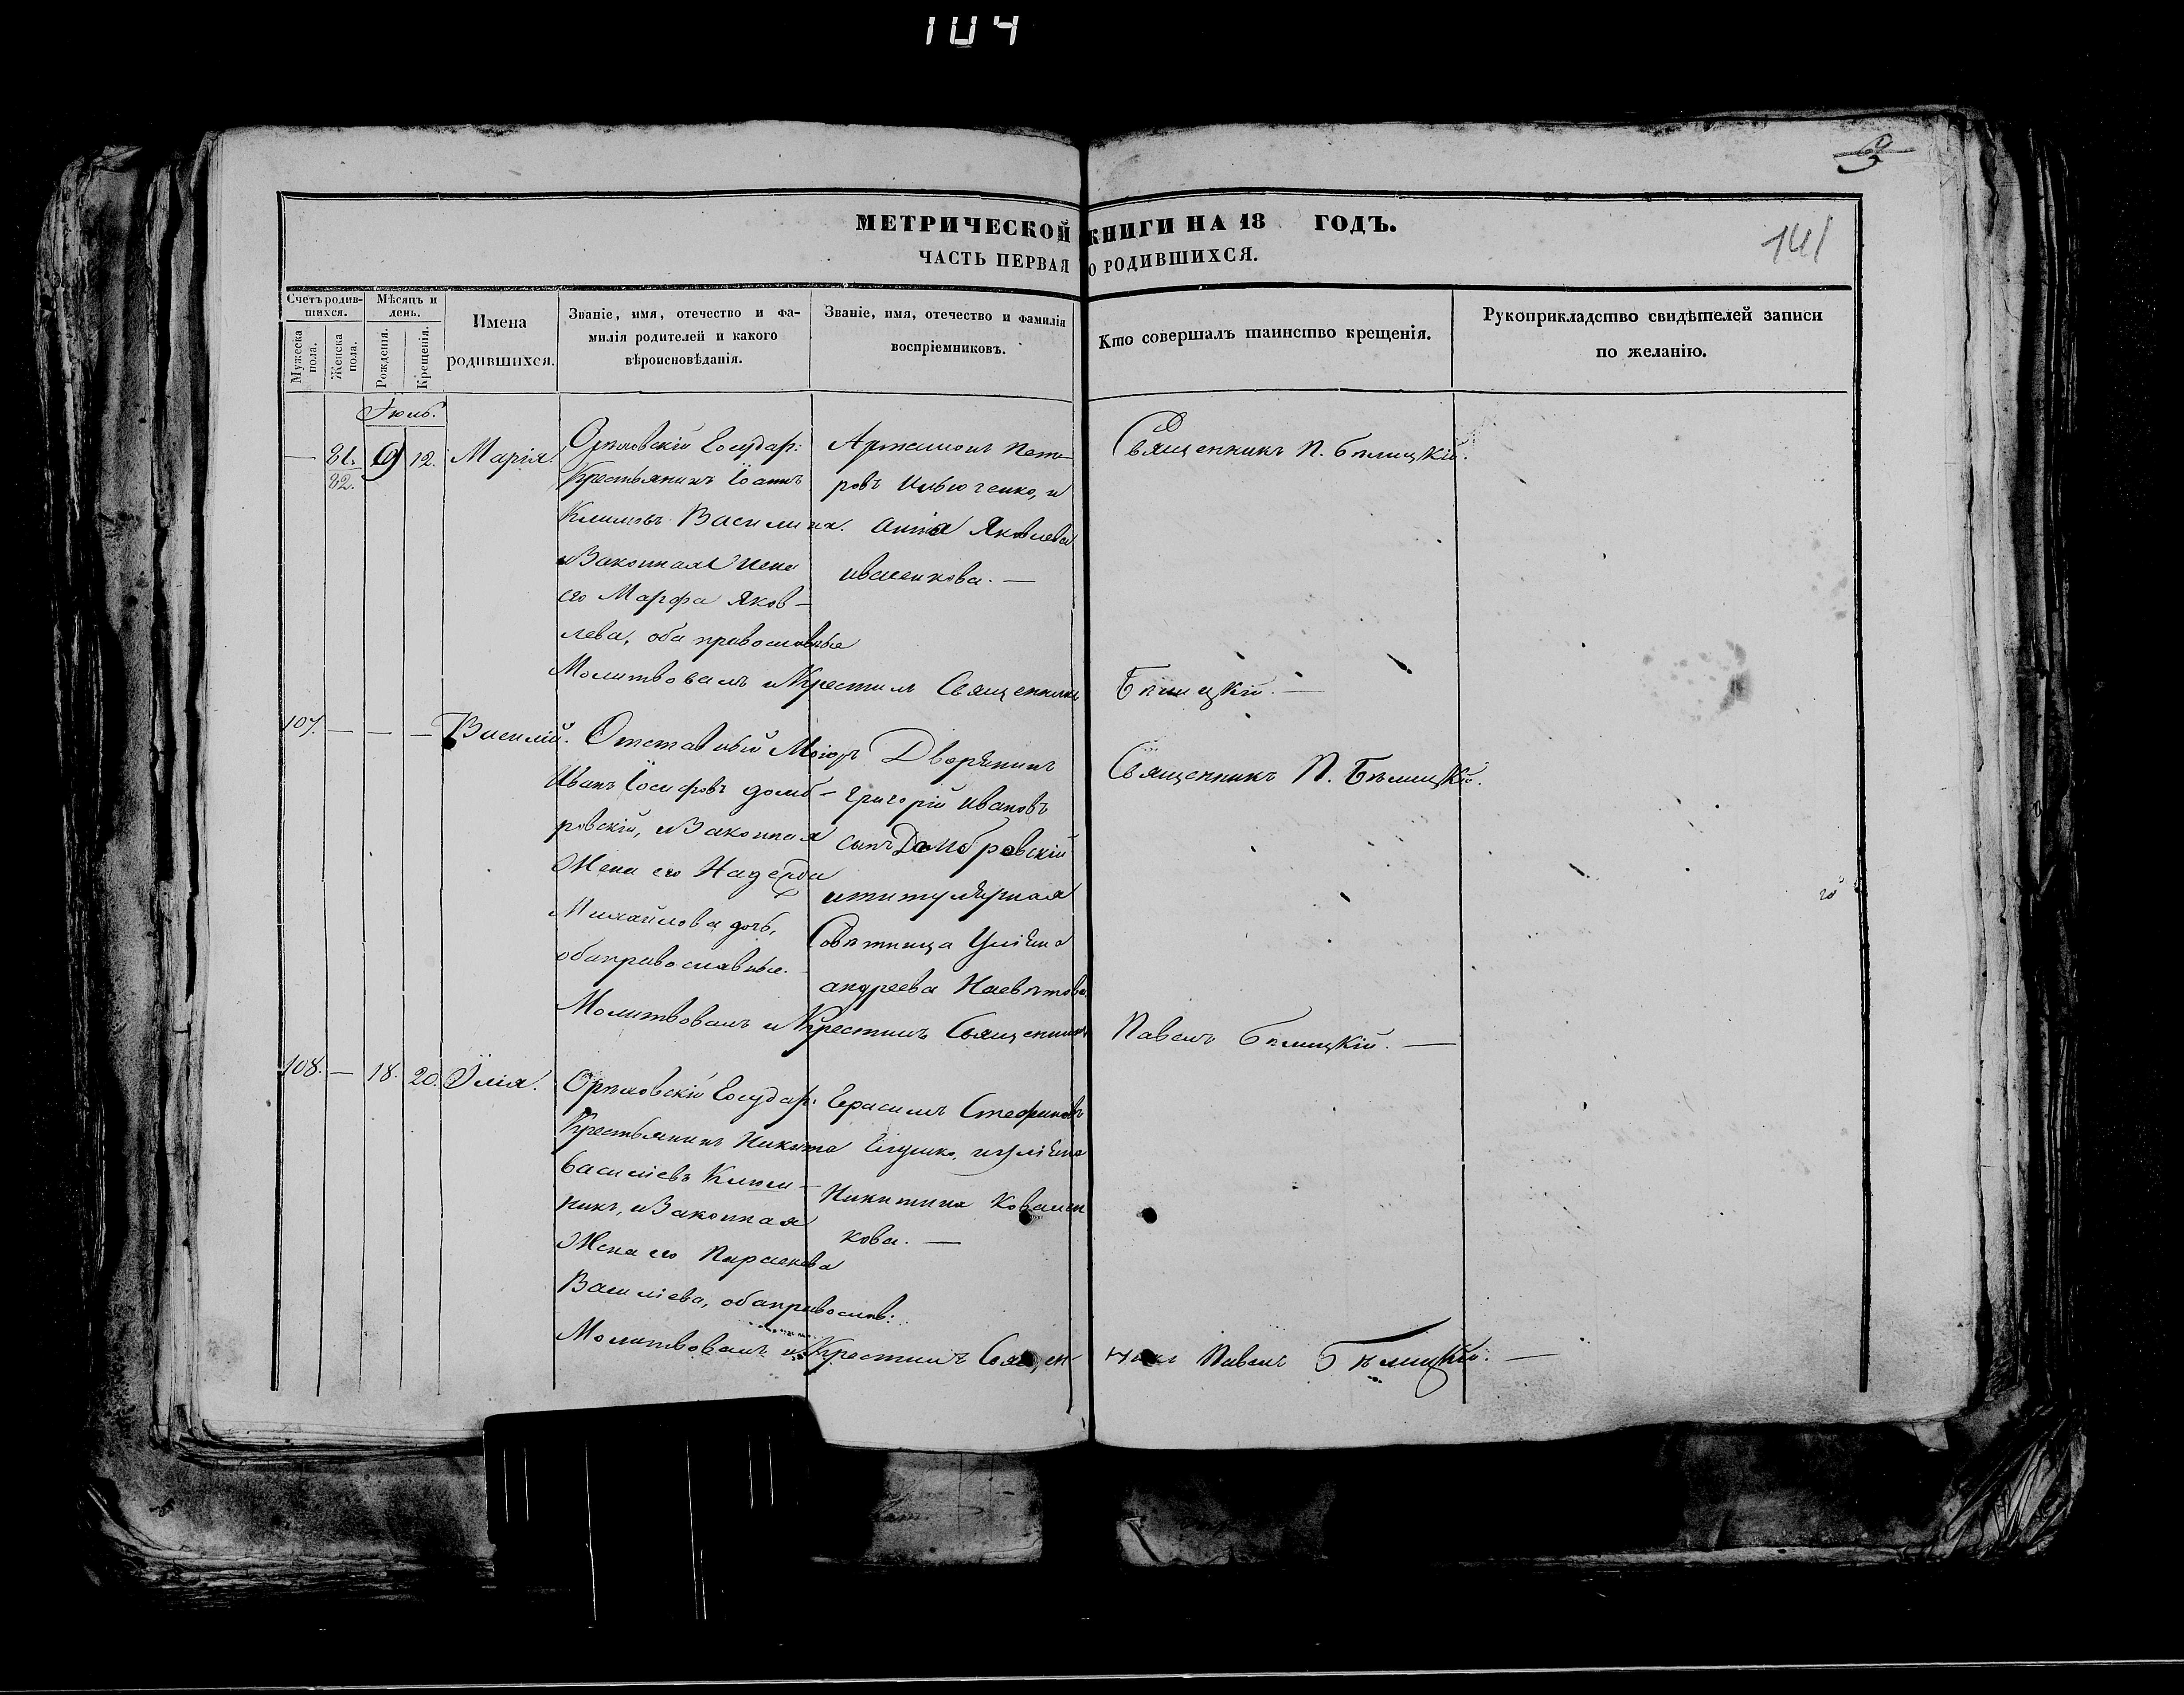 104
МЕТРИЧЕСКОЙ КНИГИ НА 18 ГОДЪ.
ЧАСТЬ ПЕРВАЯ О РОДИВШИХСЯ.
141
Счетъ родившихся.
Мужеска пола.
Женска пола.
Мѣсяцъ и день.
Рожденія.
Крещенія.
Имена родившихся.
Званіе, имя, отечество и фа-
милія родителей и какого
вѣроисновѣданія.
Званіе, имя, отечество и фамилія
воспріемниковъ.
Кто совершалъ таинство крещенія.
Рукоприкладство свидѣтелей записи
по желанію.
Іюль.
— 81. 9 12. Марія.
82.
Орѣховскій Государ:
Крестьянинъ Іоаннъ
Климовъ
и Законная Жена
его Марфа Яков-
лева, оба православные
Артимонъ Пет-
ровъ Ильюченко, и
Анна Яковлева
Иваненкова. —
Священникъ П. Бѣлицкій.
Молитвовалъ и Крестилъ Священникъ Бѣлицкій. —
107. — — — Василій.
Отставный Маіоръ
Иванъ Іосифовъ Домб-
ровскій, и Законная
Жена его Надежда
Михайлова дочь,
оба православные.
Дворянинъ
Григорій Ивановъ
сынъ Домбровскій
и титулярная
Совѣтница Уліяна
Андреева
Священникъ П. Бѣлицкій.
Молитвовалъ и Крестилъ Священникъ Павелъ Бѣлицкій. —
108. — 18. 20. Илія.
Орѣховскій Государ:
Крестьянинъ Никита
Василіевъ
никъ, и Законная
Жена его Параскева
Василіева, оба православ:
Герасимъ Стефановъ
и Уліяна
Никитина Ковален
кова. —
Молитвовалъ и Крестилъ Священ-
никъ Павелъ Бѣлицкій. —